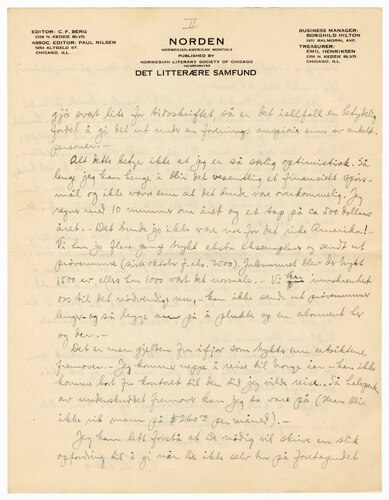 II
EDITOR: C. F. BERG
2358 N. KEDZIE BLVD.
ASSOC. EDITOR: PAUL NILSEN
5255 ALTGELD ST
CHICAGO, ILL.
NORDEN
NORWEGIAN-AMERICAN MONTHLY
PUBLISHED BY
NORWEGIAN LITERARY SOCIETY OF CHICAGO
INCORPORATED
DET LITTERÆRE SAMFUND
BUSINESS MANAGER:
BORGHILD HILTON
1651 BALMORAL AVE.
TREASURER:
EMIL HENRIKSEN
2350 N. KEDZIE BLVD.
CHICAGO, ILL.
gjør svært lite for tidsskriftet så er det iallfall en betydelig
fordel å gi det ut under en forenings auspicia enn av enkelt-
personer!—
Alt dette betyr ikke at jeg er så særlig optimistisk. Så
lenge jeg kan henge i blir det vesendlig et finansielt spørs-
mål og ikke være enn at det burde være overkommelig. Jeg
regner med 10 nummer om året og et tap på ca 500 dollars
året. Det burde jo ikke være for det rike Amerika!—
Vi har jo flere gang trykt ekstra eksemplarer og sendt ut
prøvenummre (siste oktober f. eks. 2500). Julenummret blev der trykt
1500 av ellers har 1000 vært det normale.— Vi har innskrenket
oss til det nødvendige nu,— kan ikke sende ut prøvenummer
lenger— og så legge an på å plukke op en abonnent her
og der.—
Det er mer gjelden fra ifjor som trykker enn utsiktene
fremover.— Jeg kommer neppe å reise til Norge iår— kan ikke
komme bort fra kontoret til den tid jeg vilde reise. Så halvparten
av underskuddet fremover kan jeg ta vare på (Man blir
ikke rik mann på $260.00 per måned).—
Jeg kan lett forstå at De nødig vil skrive en slik
opfordring til å gi når De ikke selv har på foretagendet